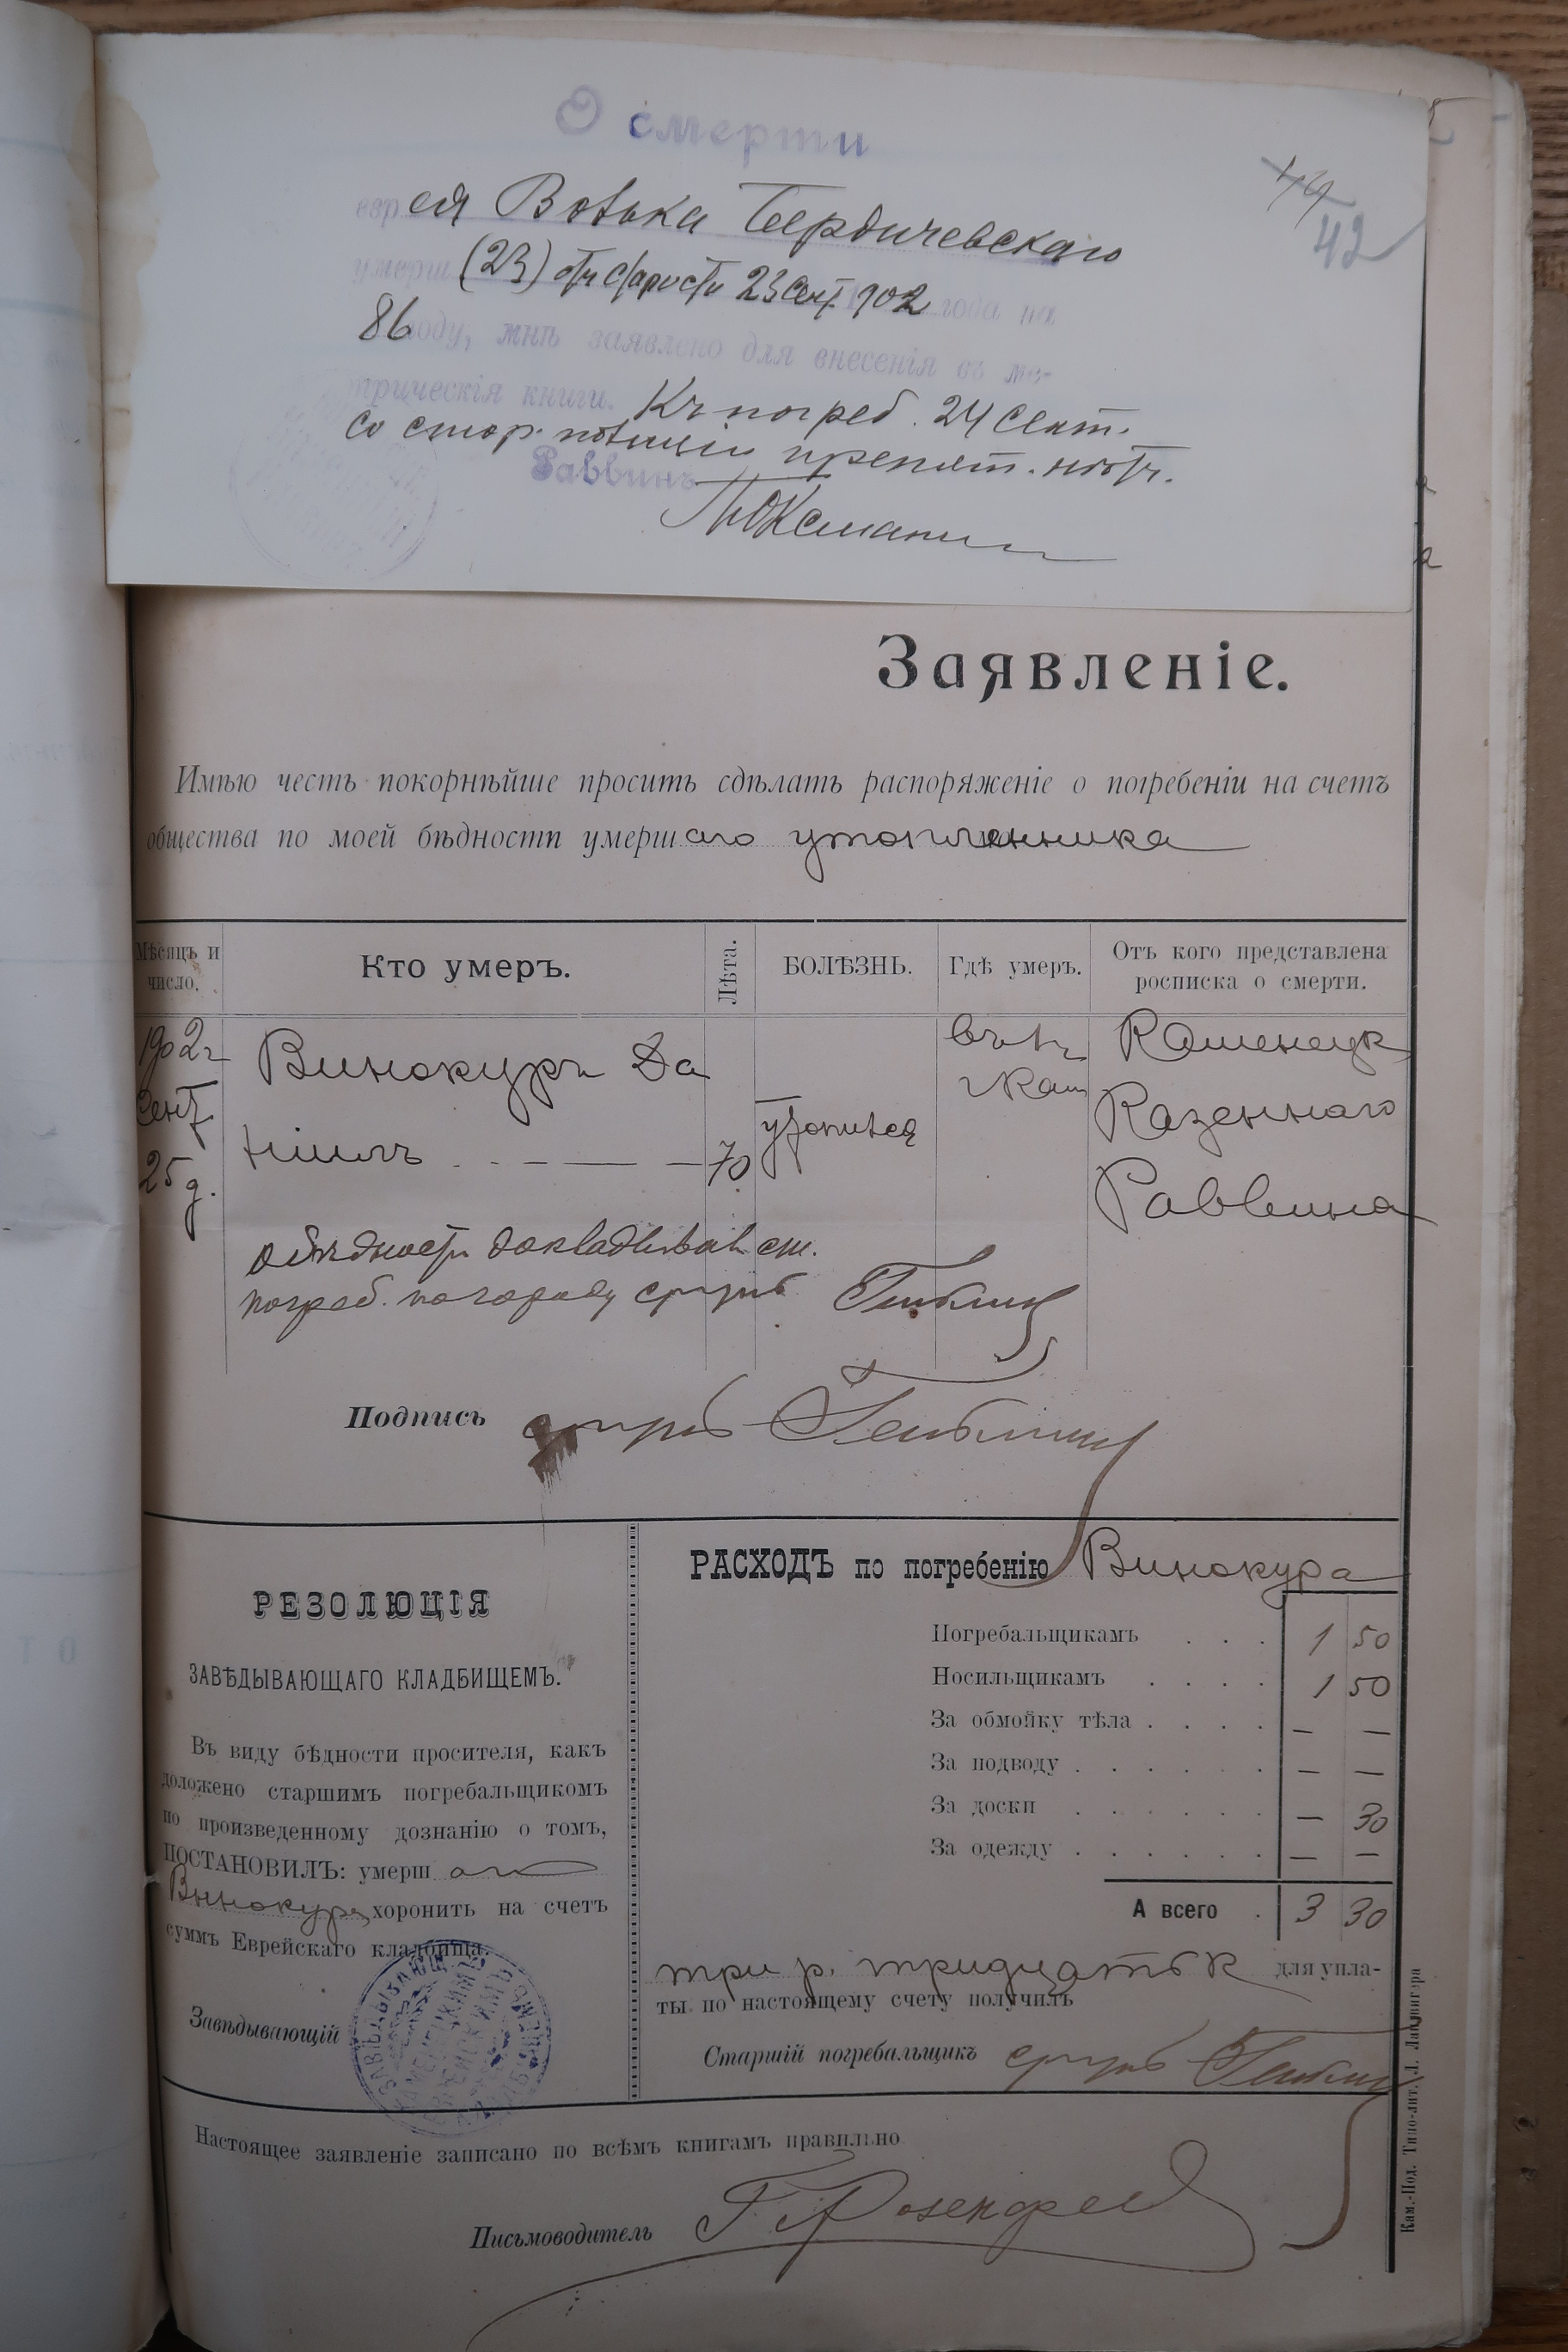 О смерти
еврея Вовка Бердичевскаго
умерш (23) отъ старости 23 Сент. 902 года на
86 году, мнѣ заявлено для внесенія въ ме-
трическія книги. Къ погреб. 24 Сент.
со стор. полиціи препят. нѣтъ.
Раввинъ
42
Заявленіе.
Имѣю честь покорнѣйше просить сдѣлать распоряженіе о погребеніи на счетъ
общества по моей бѣдности умершаго утопленника
Мѣсяцъ и число. Кто умеръ. Лѣта. БОЛѢЗНЬ. Гдѣ умеръ. Отъ кого представлена росписка о смерти.
1902 г Винокуръ Да Каменецк
Сент нііилъ 70 утопился Казеннаго
25 д. Раввина
о бѣдности докладывалъ ст.
погреб. по городу
Подпись
РЕЗОЛЮЦІЯ
ЗАВѢДЫВАЮЩАГО КЛАДБИЩЕМЪ.
Въ виду бѣдности просителя, какъ
доложено старшимъ погребальщикомъ
по произведенному дознанію о томъ,
ПОСТАНОВИЛЪ: умерш аго
Винокура хоронить на счетъ
суммъ Еврейскаго кладбища.
Завѣдывающій
РАСХОДЪ по погребенію Винокура
Погребальщикамъ . . . 1 50
Носильщикамъ . . . . 1 50
За обмойку тѣла . . . . — —
За подводу . . . . . . — —
За доски . . . . . . — 30
За одежду . . . . . . — —
А всего . 3 30
три р. тридцать к для упла-
ты по настоящему счету получилъ
Старшій погребальщикъ
Настоящее заявленіе записано по всѣмъ книгамъ правильно
Письмоводитель Г Розенфельд
Кам.-Под. Типо-лит.